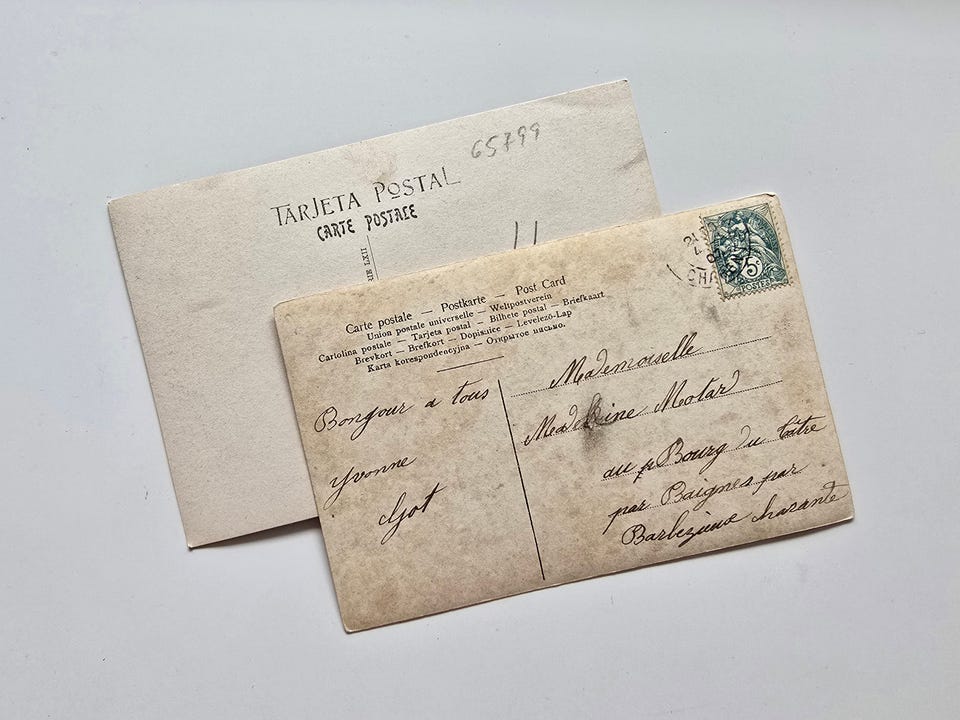 65799
TARJETA POSTAL
CARTE POSTALE
Carte postale — Postkarte — Post Card
Union postale universelle — Weltpostverein
Cartolina postale — Tarjeta postal — Bilhete postal — Briefkaart
Brevkort — Brefkort — Dopisnice — Levelező-Lap
Karta korespondencyjna — Открытое письмо.
5c
POSTES
CHA
Bonjour a tous
Yvonne
Got
Mademoiselle
Madeleine Motard
au p Bourg du
par Baignes par
Barbezieux charante